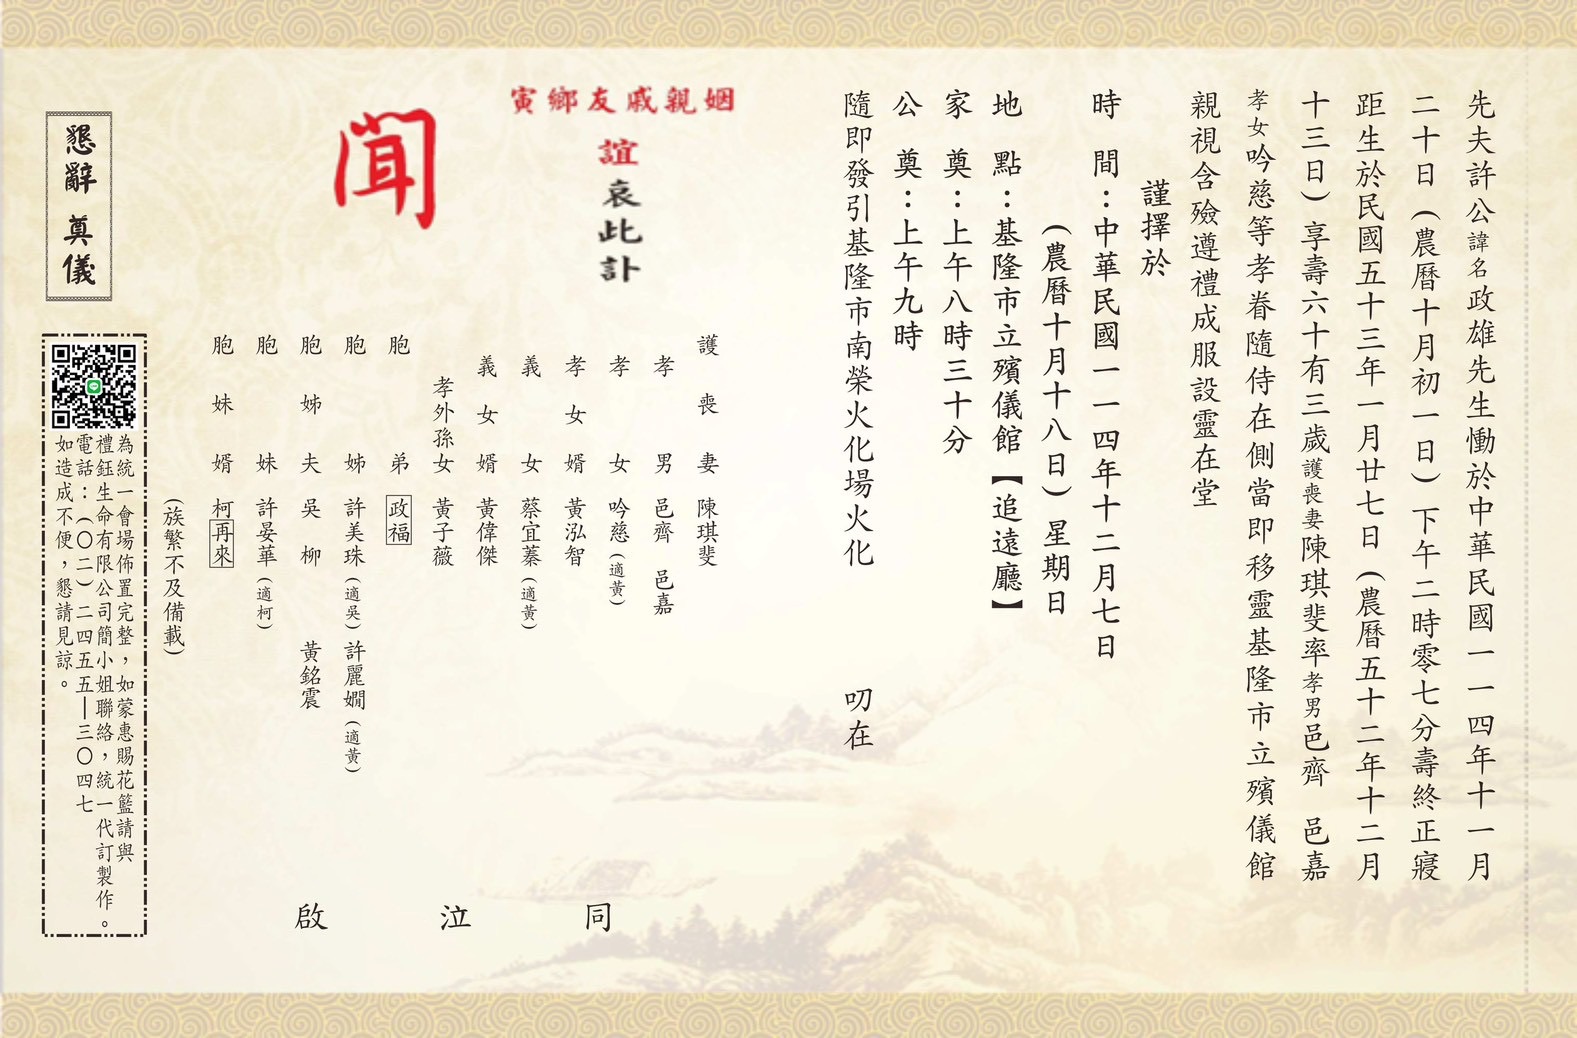 先夫許公諱名政雄先生慟於中華民國一一四年十一月
二十日(農曆十月初一日)下午二時零七分壽終正寢
距生於民國五十三年一月廿七日(農曆五十二年十二月
十三日)享壽六十有三歲護喪妻陳琪斐率孝男邑齊 邑嘉
孝女吟慈等孝眷隨侍在側當即移靈基隆市立殯儀館
親視含殮遵禮成服設靈在堂
謹擇於
時 間:中華民國一一四年十二月七日
(農曆十月十八日)星期日
地 點:基隆市立殯儀館【追遠廳】
家 奠:上午八時三十分
公 奠:上午九時
隨即發引基隆市南榮火化場火化 叨在
姻親戚友鄉寅
誼哀此訃
聞
護喪妻 陳琪斐
孝男 邑齊 邑嘉
孝女 吟慈(適黃)
孝女婿 黃泓智
義女 蔡宜蓁(適黃)
義女婿 黃偉傑
孝外孫女 黃子薇
胞弟 政福
胞姊 許美珠(適吳) 許麗嫺(適黃)
胞姊夫 吳柳 黃銘震
胞妹 許晏華(適柯)
胞妹婿 柯再來
(族繁不及備載)
同泣啟
懇辭 奠儀
為統一會場佈置完整,如蒙惠賜花籃請與
禮鈺生命有限公司簡小姐聯絡,統一代訂製作。
電話:(〇二)二四五五—三〇四七
如造成不便,懇請見諒。